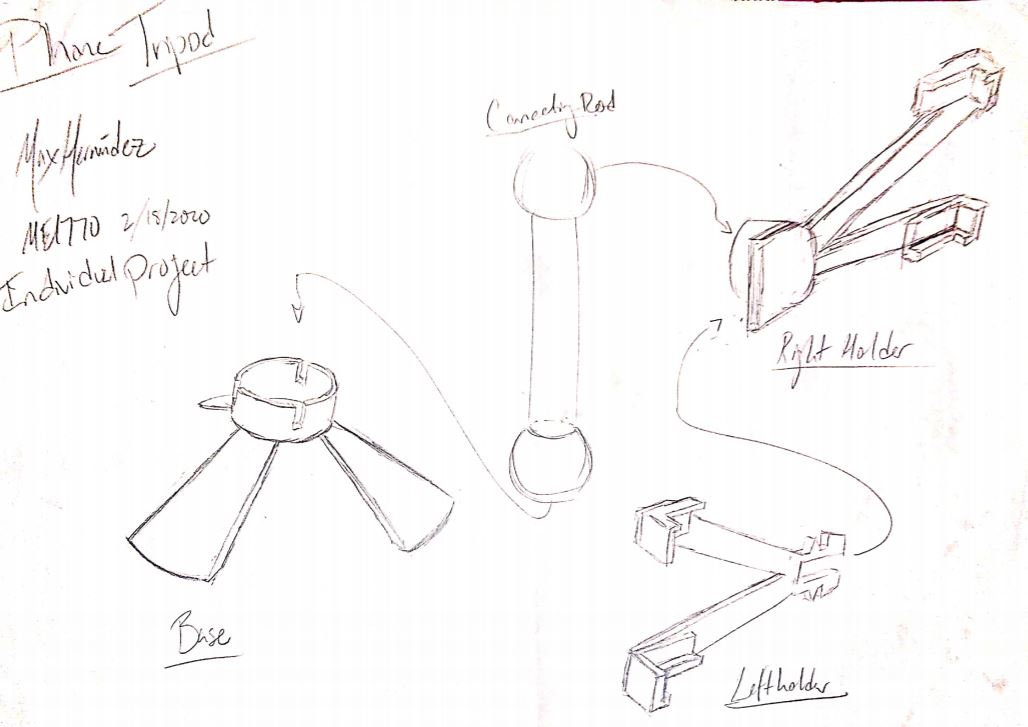 Phone Tripod
Max Hernández
ME1770 2/18/2020
Individual Project
Connecting Rod
Right Holder
Base
Left holder